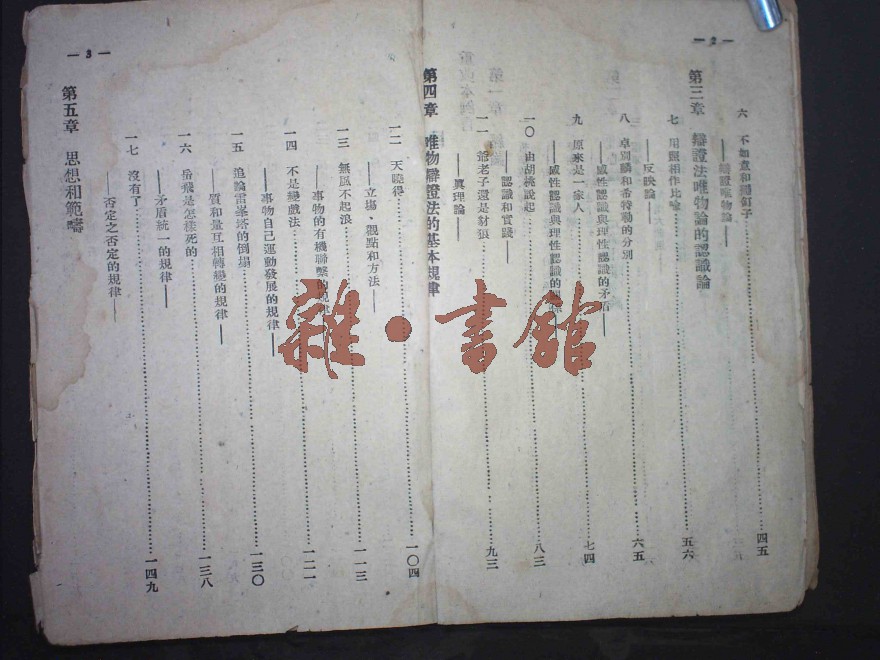 — 2 —
六 不如意和
——辯證唯物論——
四五
第三章 辯證法唯物論的認識論
七 用照相作比喻
五六
——反映論——
八 卓別麟和希特勒的分別
六五
——感性認識與理性認識的矛盾——
九 原來是一家人
七四
——感性認識與理性認識的
一〇 由胡桃說起
八三
——認識和實踐——
一一 爺老子還是豺狼
九三
——真理論——
第四章 唯物辯證法的基本規律
一二 天曉得
一〇四
——立場、觀點和方法——
一三 無風不起浪
一一三
——事物的有機聯繫的規律
一四 不是變戲法
一二一
——事物自己運動發展的規律——
一五 追論雷峯塔的倒塌
一三〇
——質和量互相轉變的規律——
一六 岳飛是怎樣死的
一三八
——矛盾統一的規律——
一七 沒有了
一四九
——否定之否定的規律——
第五章 思想和範疇
— 3 —
雜·書館